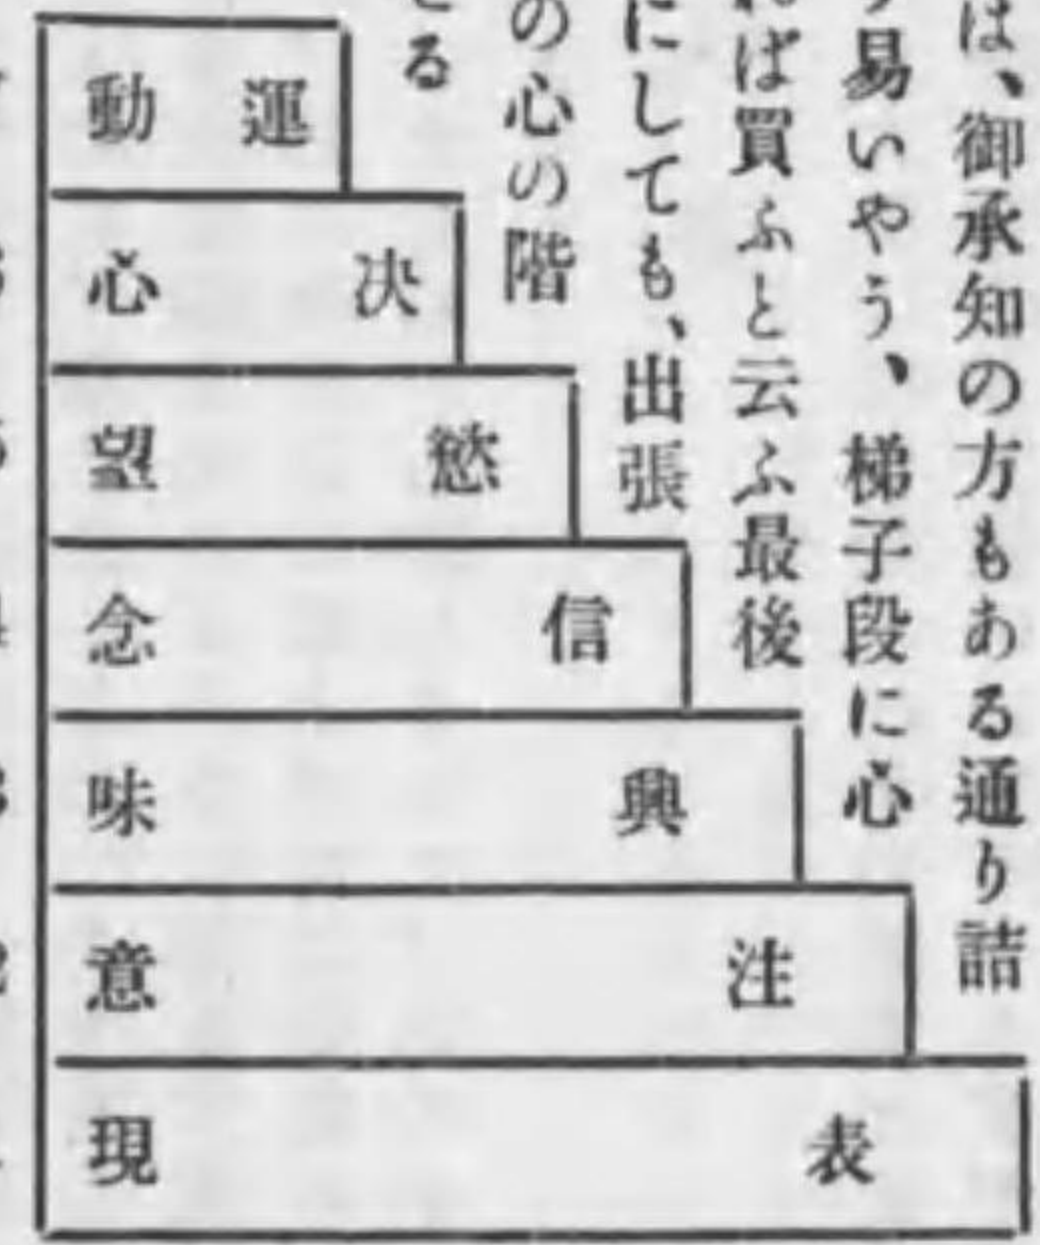 は、御承知の方もある通り詰
易いやう、梯子段に心
ば買ふと云ふ最後
にしても、出張
の心の階
る
運動
决心
慾望
信念
興味
注意
表現